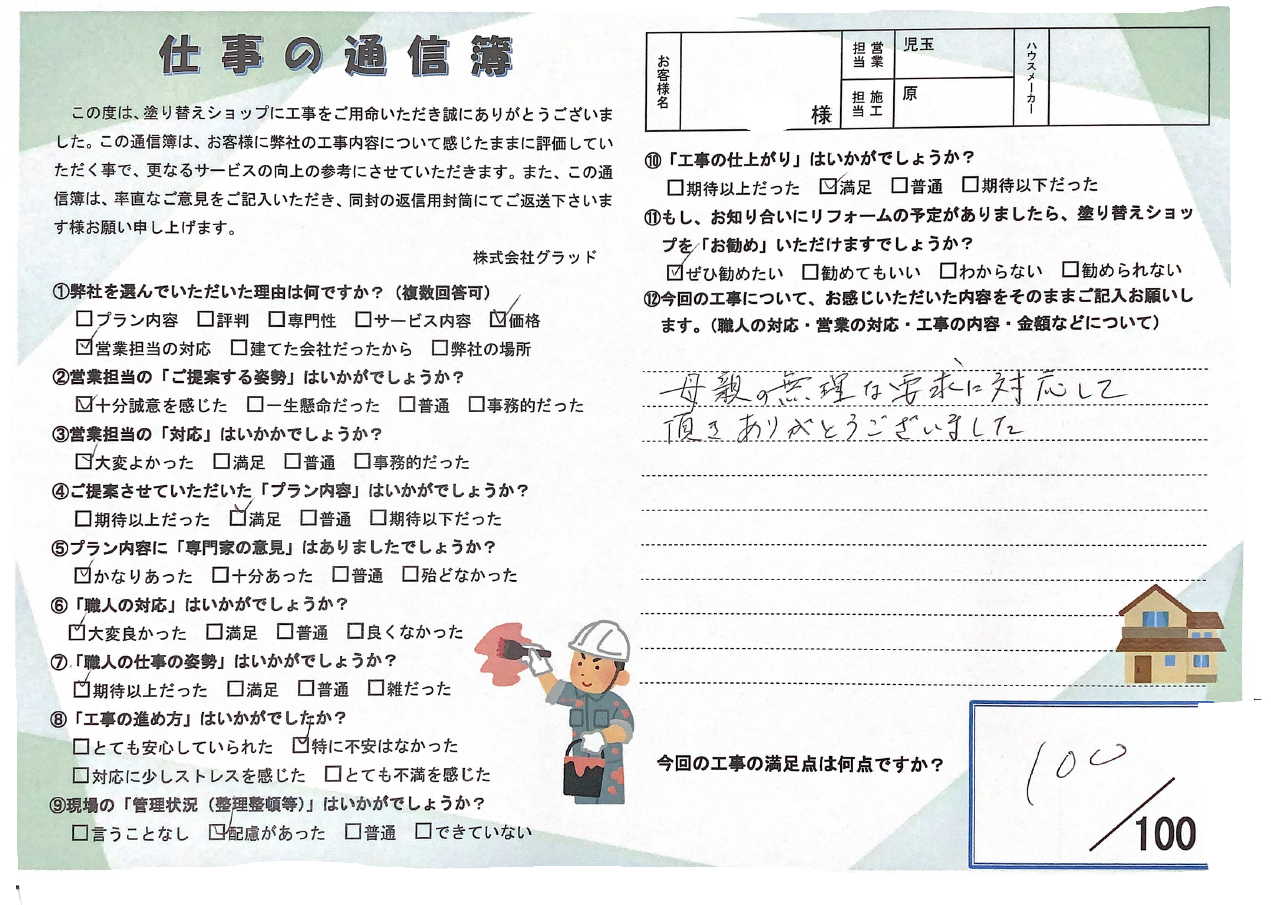 仕事の通信簿
この度は、塗り替えショップに工事をご用命いただき誠にありがとうございま
した。この通信簿は、お客様に弊社の工事内容について感じたままに評価してい
ただく事で、更なるサービスの向上の参考にさせていただきます。また、この通
信簿は、率直なご意見をご記入いただき、同封の返信用封筒にてご返送下さいま
す様お願い申し上げます。
株式会社グラッド
①弊社を選んでいただいた理由は何ですか？（複数回答可）
□プラン内容 □評判 □専門性 □サービス内容 ☑価格
☑営業担当の対応 □建てた会社だったから □弊社の場所
②営業担当の「ご提案する姿勢」はいかがでしょうか？
☑十分誠意を感じた □一生懸命だった □普通 □事務的だった
③営業担当の「対応」はいかかでしょうか？
☑大変よかった □満足 □普通 □事務的だった
④ご提案させていただいた「プラン内容」はいかがでしょうか？
□期待以上だった ☑満足 □普通 □期待以下だった
⑤プラン内容に「専門家の意見」はありましたでしょうか？
☑かなりあった □十分あった □普通 □殆どなかった
⑥「職人の対応」はいかがでしょうか？
☑大変良かった □満足 □普通 □良くなかった
⑦「職人の仕事の姿勢」はいかがでしょうか？
☑期待以上だった □満足 □普通 □雑だった
⑧「工事の進め方」はいかがでしたか？
□とても安心していられた ☑特に不安はなかった
□対応に少しストレスを感じた □とても不満を感じた
⑨現場の「管理状況（整理整頓等）」はいかがでしょうか？
□言うことなし ☑配慮があった □普通 □できていない
お客様名 様 営業担当 児玉 ハウスメーカー
施工担当 原
⑩「工事の仕上がり」はいかがでしょうか？
□期待以上だった ☑満足 □普通 □期待以下だった
⑪もし、お知り合いにリフォームの予定がありましたら、塗り替えショッ
プを「お勧め」いただけますでしょうか？
☑ぜひ勧めたい □勧めてもいい □わからない □勧められない
⑫今回の工事について、お感じいただいた内容をそのままご記入お願いし
ます。（職人の対応・営業の対応・工事の内容・金額などについて）
母親の無理な要求に対応して
頂きありがとうございました
今回の工事の満足点は何点ですか？
100
／100